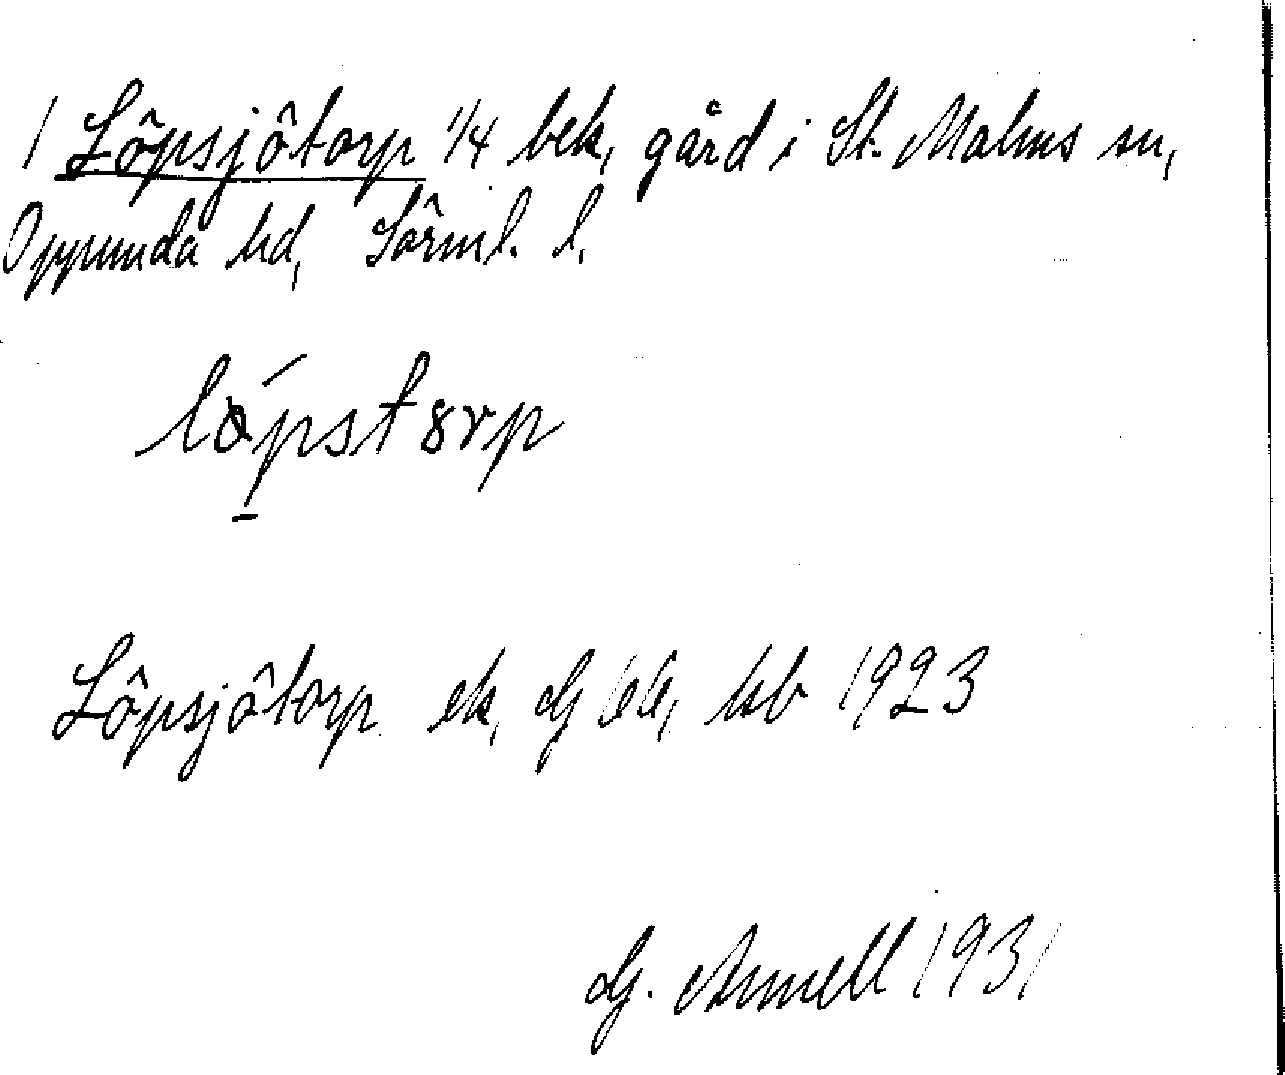 1 Löpsjötorp 1/4 bek, gård i St. Malms sn,
Oppunda hd, Sörml. l.
löpstorp
Löpsjötorp ek, kb 1923
G. Armell 1931